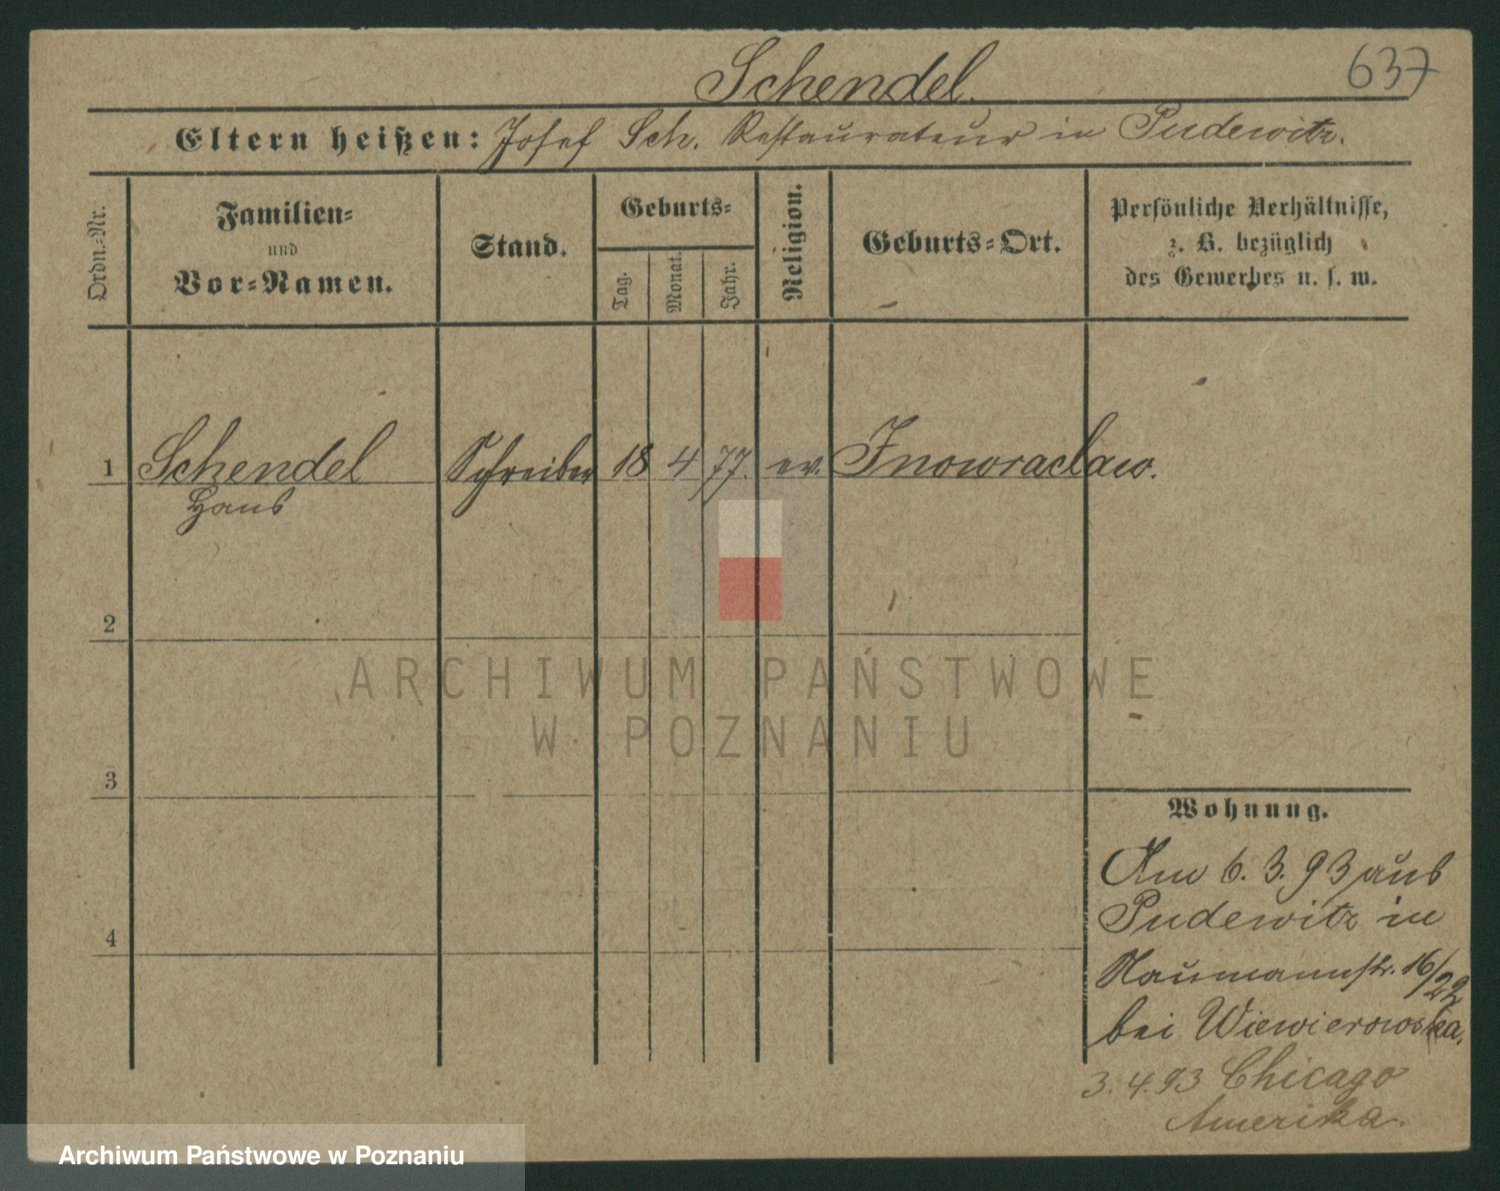 Schendel.
637
Eltern heißen: Josef Sch. Restaurateur in Pudewitz.
Ordn.=Nr.
Familien=
und
Vor=Namen.
Stand.
Geburts=
Tag.
Monat.
Jahr.
Religion.
Geburts=Ort.
Persönliche Verhältnisse,
z. B. bezüglich
des Gewerbes u. s. w.
1 Schendel Schreiber 18 4 77. ev. Inowraclaw.
Hans
2
ARCHIWUM PAŃSTWOWE
W POZNANIU
3
Wohnung.
Am 6. 3. 93 aus
Pudewitz in
4
Naumannstr. 16/22
bei Wiewierowska.
3. 4. 93 Chicago
Amerika.
Archiwum Państwowe w Poznaniu